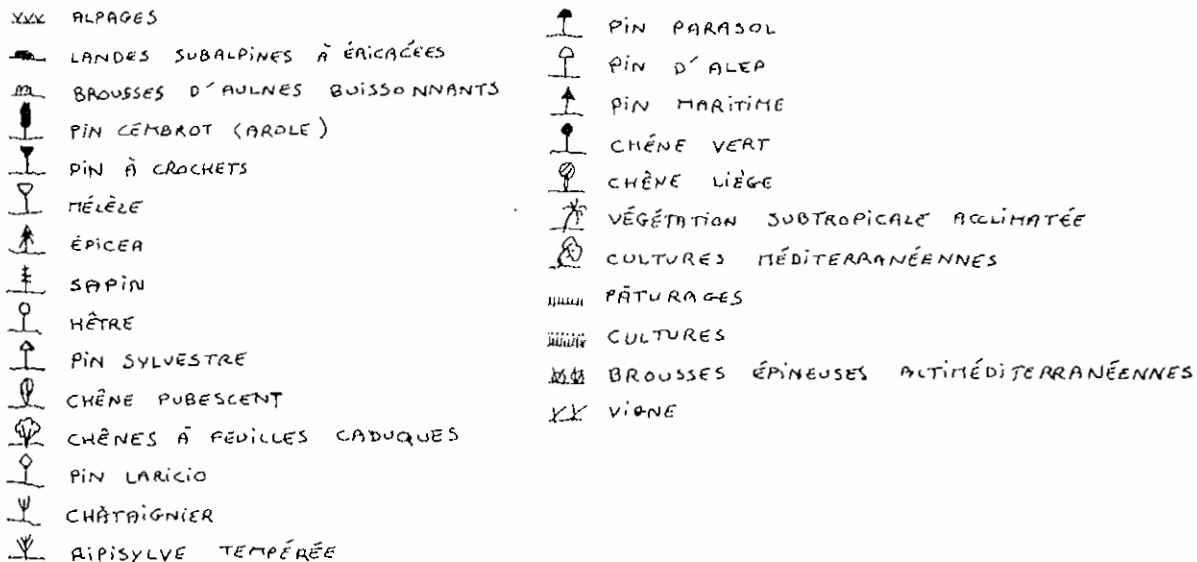 ALPAGES
LANDES SUBALPINES À ÉRICACÉES
BROUSSES D'AULNES BUISSONNANTS
PIN CEMBROT (AROLE)
PIN À CROCHETS
MÉLÈZE
ÉPICEA
SAPIN
HÊTRE
PIN SYLVESTRE
CHÊNE PUBESCENT
CHÊNES À FEUILLES CADUQUES
PIN LARICIO
CHÂTAIGNIER
RIPISYLVE TEMPÉRÉE
PIN PARASOL
PIN D'ALEP
PIN MARITIME
CHÊNE VERT
CHÊNE LIÈGE
VÉGÉTATION SUBTROPICALE ACCLIMATÉE
CULTURES MÉDITERRANÉENNES
PÂTURAGES
CULTURES
BROUSSES ÉPINEUSES ALTIMÉDITERRANÉENNES
VIGNE